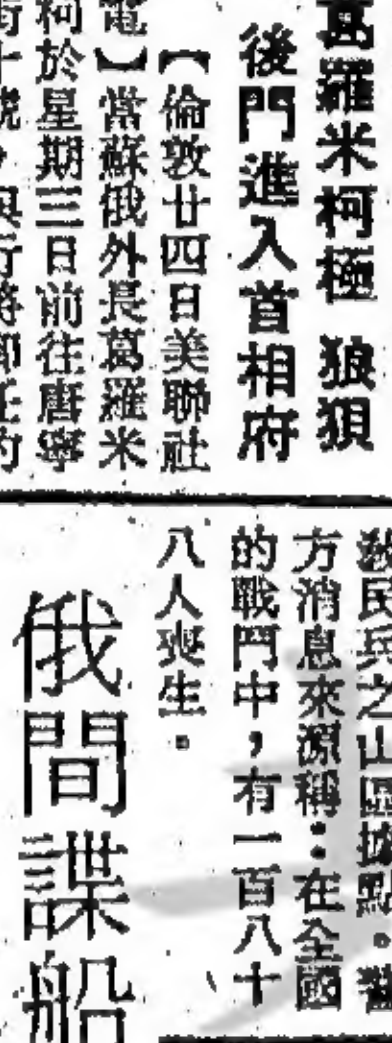 葛羅米柯極　狼狽
後門進入首相府
【倫敦廿四日美聯社
電】當蘇俄外長葛羅米
柯於星期三日前往唐寧
街十號，與行將卸任的
民兵之山區據點。
方消息來源稱：在全國
的戰鬥中，有一百八十
八人喪生。
俄間諜船